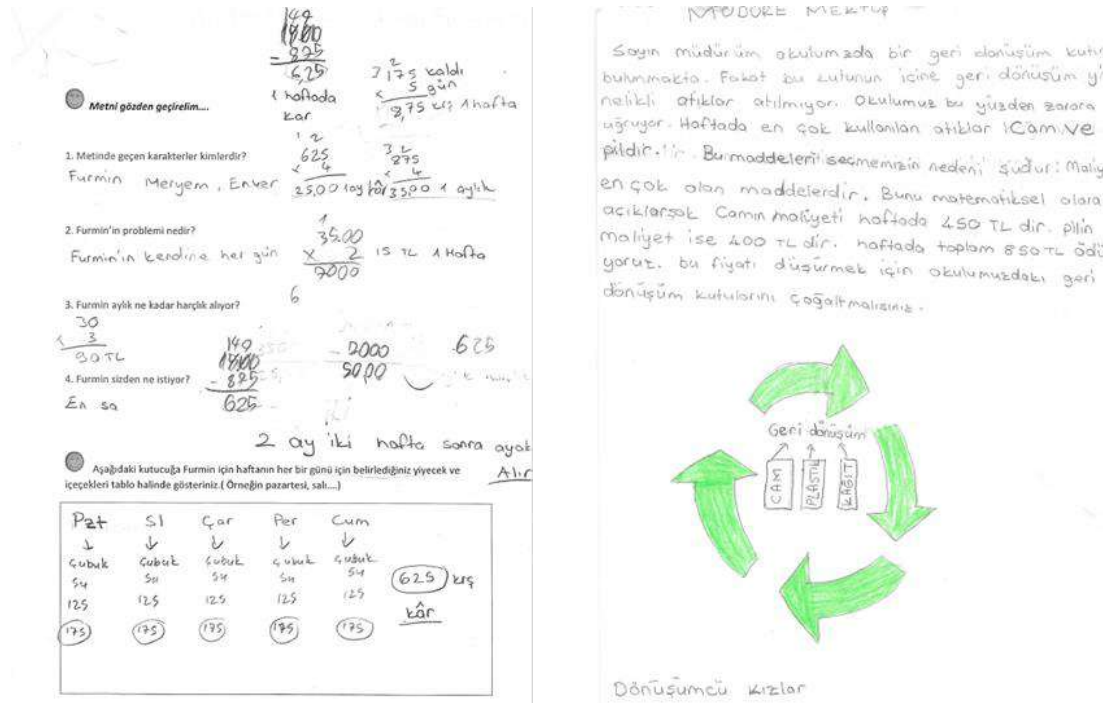 149
1500
- 825
6,25
1 haftada
kar
2
3,175 kaldı
x 5 gün
8,75 krş 1 hafta
Metni gözden geçirelim....
1. Metinde geçen karakterler kimlerdir?
Furmin Meryem, Enver
1 2
625
x 4
25,00 1 ay kâr
3 2
875
x 4
35,00 1 aylık
2. Furmin'in problemi nedir?
Furmin'in kendine her gün
1
35.00
x 2
7000
15 TL 1 Hafta
6
3. Furmin aylık ne kadar harçlık alıyor?
30
x 3
90 TL
149
- 875
625
- 2000
50,00
625
4. Furmin sizden ne istiyor?
En sa
2 ay iki hafta sonra ayak
Alır
Aşağıdaki kutucuğa Furmin için haftanın her bir günü için belirlediğiniz yiyecek ve
içecekleri tablo halinde gösteriniz.( Örneğin pazartesi, salı....)
Pzt Sl Çar Per Cum
çubuk çubuk çubuk çubuk çubuk
su su su su su
125 125 125 125 125
175 175 175 175 175
625 krş
kâr
MÜDÜRE MEKTUP
Sayın müdürüm okulumzda bir geri dönüşüm kutu
bulunmakta. Fakat bu kutunun içine geri dönüşüm yi
nelikli atıklar atılmıyor. Okulumuz bu yüzden zarara
uğruyor. Haftada en çok kullanılan atıklar Cam ve
pildir. Bu maddeleri seçmemizin nedeni şudur: Maliy
en çok olan maddelerdir. Bunu matematiksel olara
açıklarsak Camın maliyeti haftada 450 TL dir. pilin
maliyet ise 400 TL dir. haftada toplam 850 TL ödü
yoruz. bu fiyatı düşürmek için okulumuzdaki geri
dönüşüm kutularını çoğaltmalısınız.
Geri dönüşüm
CAM
PLASTİK
KAĞIT
Dönüşümcü kızlar